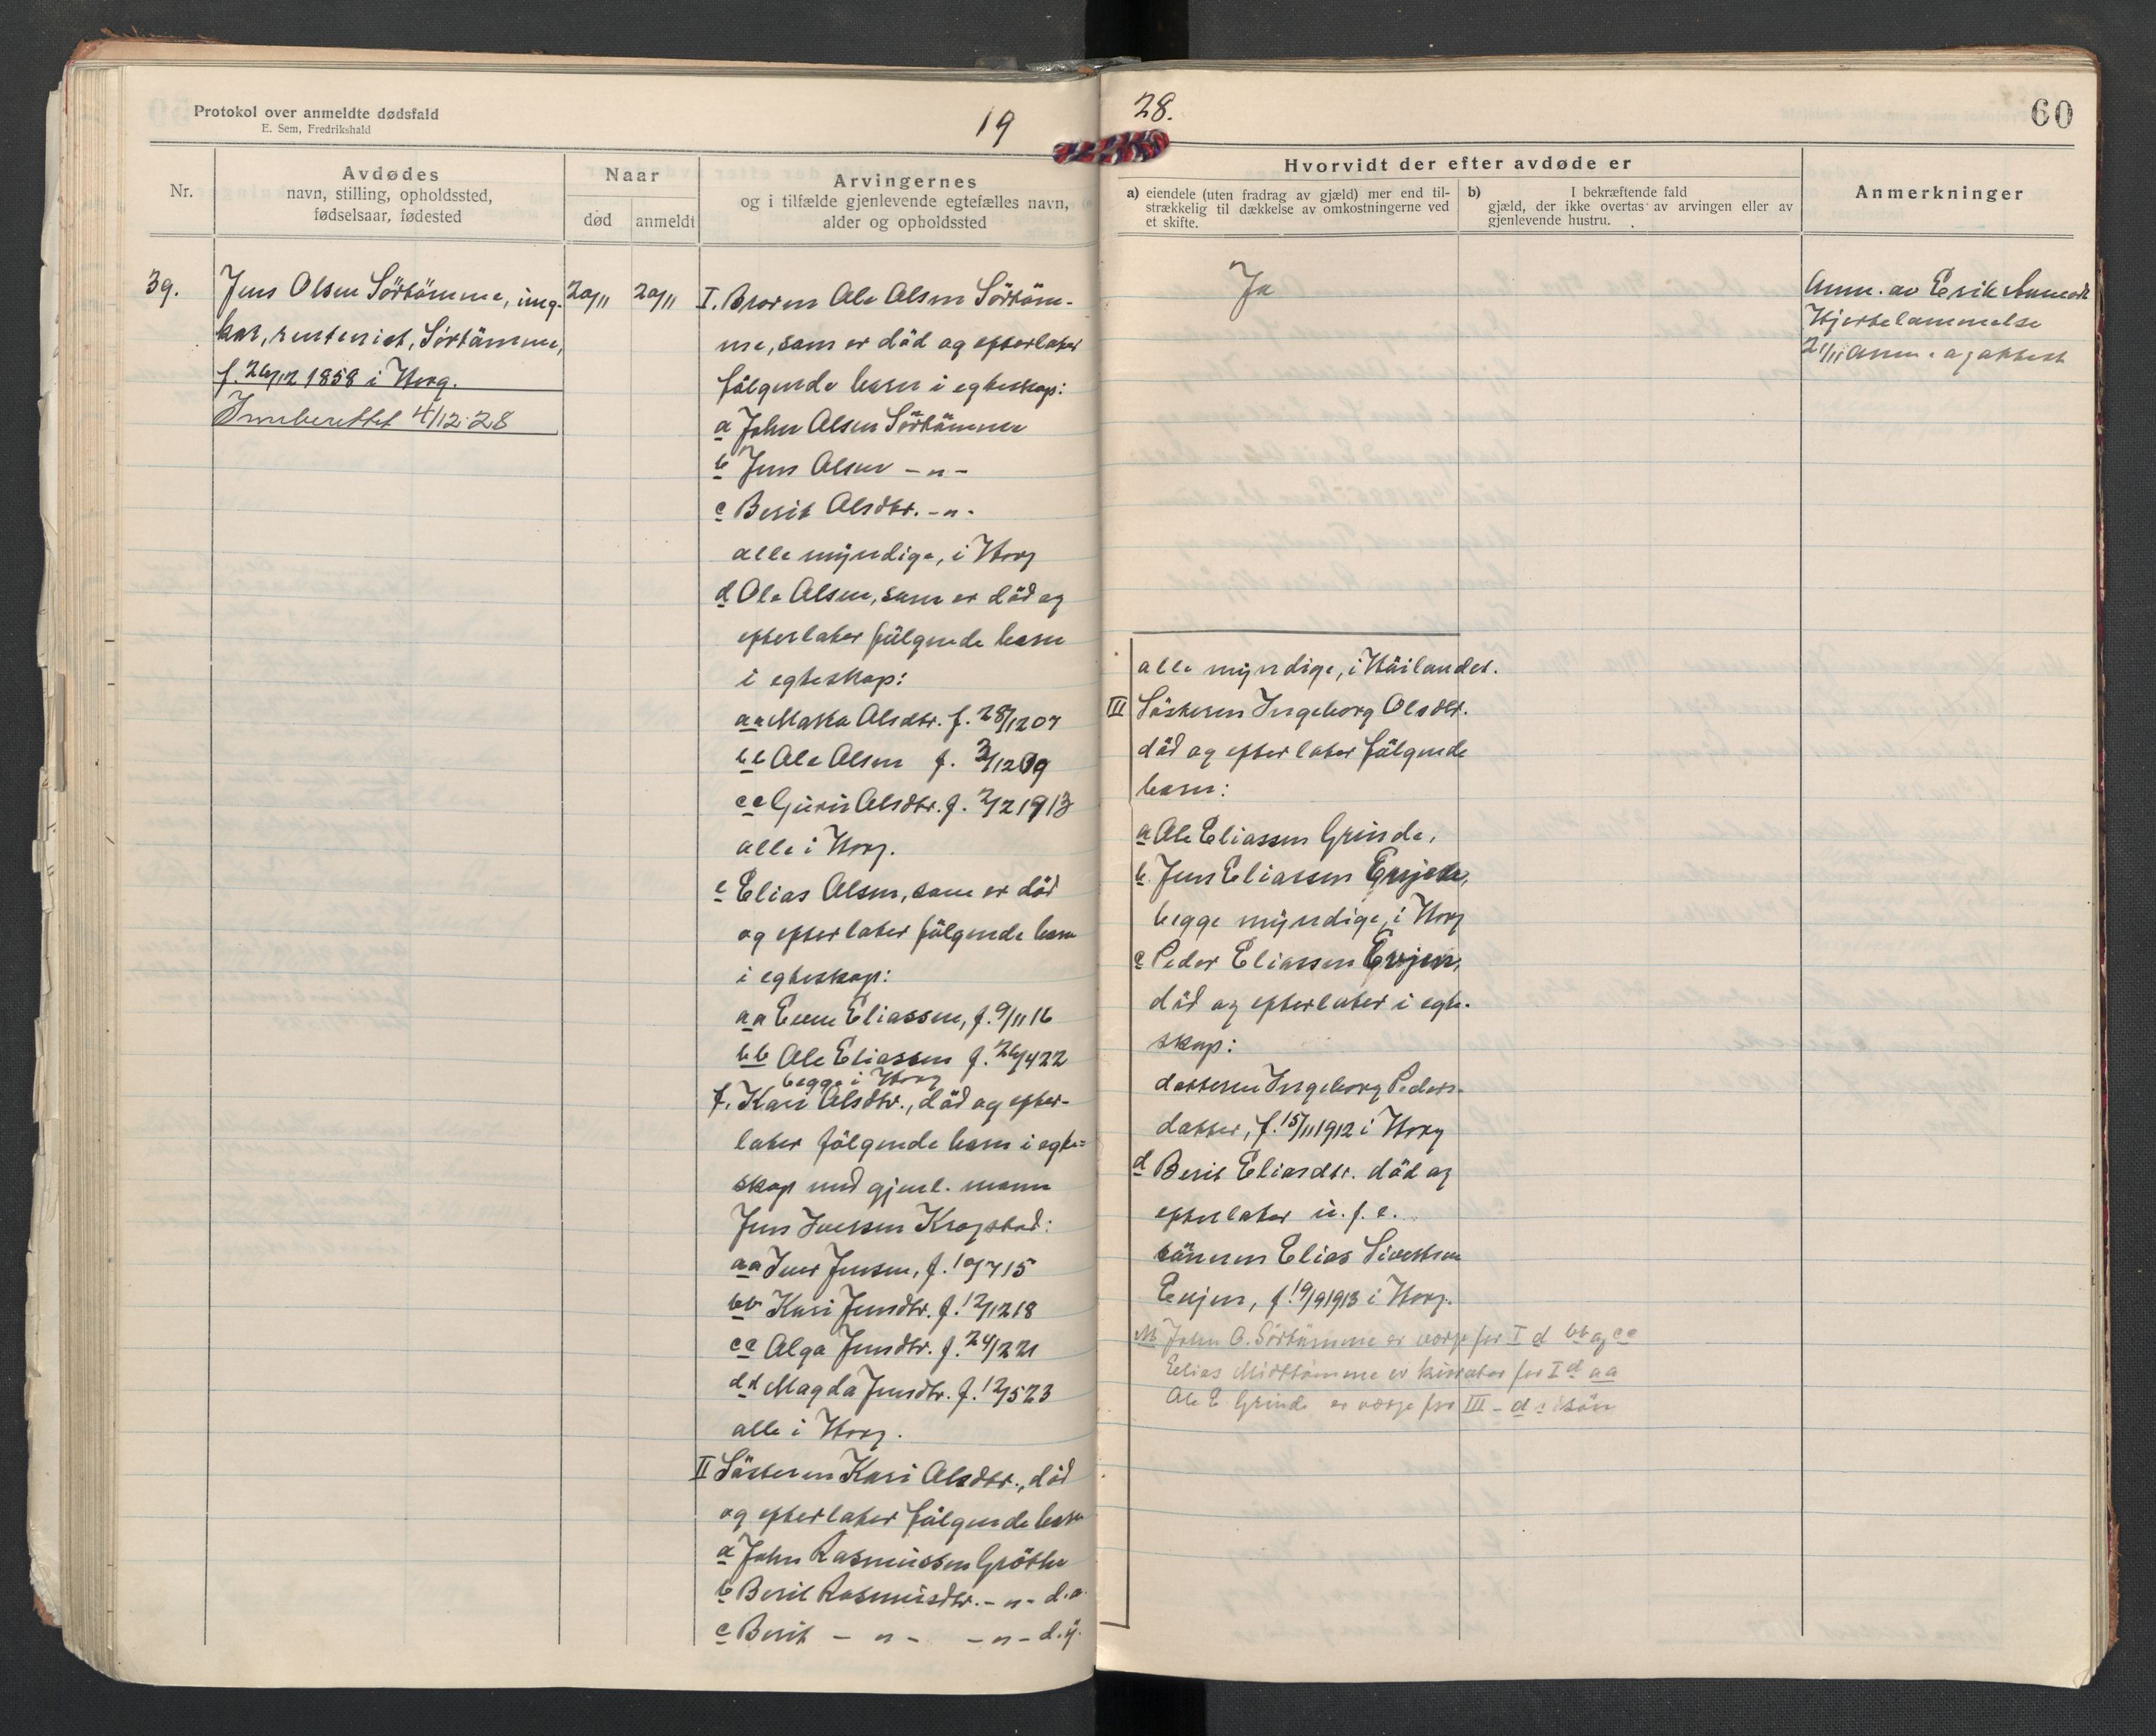 Protokol over anmeldte dødsfald
E. Sem, Fredrikshald
19
Nr.
Avdødes
navn, stilling, opholdssted,
fødselsaar, fødested
Naar
død
anmeldt
Arvingernes
og i tilfælde gjenlevende egtefælles navn,
alder og opholdssted
39.
Jens Olsen Sörtömme, ung-
kar, rentenist, Sörtömme,
f. 26/12 1858 i Horg.
Innberettet 4/12.28
20/11
20/11
I. Broren Ole Olsen Sörtöm-
me, som er död og efterlater
fölgende barn i egteskap:
a John Olsen Sörtömme
b Jens Olsen -"-
c Berit Olsdtr. -"-
alle myndige, i Horg
d Ole Olsen, som er död og
efterlater fölgende barn
i egteskap:
aa Marta Olsdtr. f. 28/12 07
bb Ole Olsen f. 3/12 09
cc Guri Olsdtr. f. 2/2 1913
alle i Horg.
e Elias Olsen, som er död
og efterlater fölgende barn
i egteskap:
aa Even Eliassen, f. 9/11 16
bb Ole Eliassen f. 26/4 22
begge i Horg
f. Kari Olsdtr., död og efter-
later fölgende barn i egte=
skap med gjenl. mann
Jens Iversen Krogstad:
aa Iver Jensen, f. 10/7 15
bb Kari Jensdtr. f. 12/12 18
cc Olga Jensdtr. f. 24/2 21
dd Magda Jensdtr. f. 12/5 23
alle i Horg.
II Sösteren Kari Olsdtr., död
og efterlater fölgende barn
a John Rasmussen Gröthe
b Berit Rasmusdtr. -"- d.e.
c Berit -"- -"- d.y.
28.
60
Hvorvidt der efter avdøde er
a) eiendele (uten fradrag av gjæld) mer end til-
strækkelig til dækkelse av omkostningerne ved
et skifte.
b) I bekræftende fald
gjæld, der ikke overtas av arvingen eller av
gjenlevende hustru.
Anmerkninger
Ja
Anm. av Erik
Hjertelammelse
21/11 anm. og attest
alle myndige, i Höilandet.
III Sösteren Ingeborg Olsdtr.
död og efterlater fölgende
barn:
a Ole Eliassen Grinde,
b. Jens Eliassen Evjen,
begge myndige, i Horg
c Peder Eliassen Evjen,
död og efterlater i egte-
skap:
datteren Ingeborg Peders-
datter, f. 15/11 1912 i Horg
d Berit Eliasdtr. död og
efterlater u. f. e.
sönnen Elias Sivertsen
Evjen, f. 19/9 1913 i Horg.
John O. Sörtömme er verge for I d bb og cc
Elias Midttömme er kurator for I d aa
Ole E Grinde er verge for III - d s sön